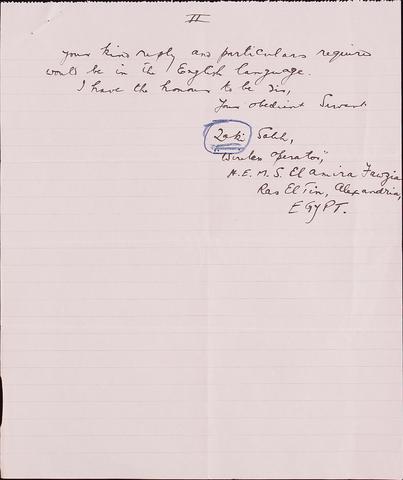 II
your kind reply and particulars require
would be in the English language.
I have the honour to be Sir,
Your obedient Servant
Zaki Salih,
Wireless Operator,
H.E.M.S. El Amira Fawzia
Ras El Tin, Alexandria,
EGYPT.